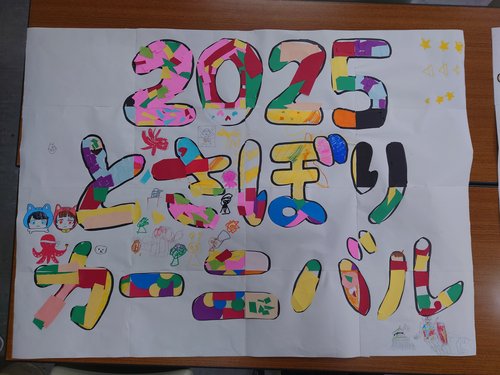 2025
とさぼり
カーニバル